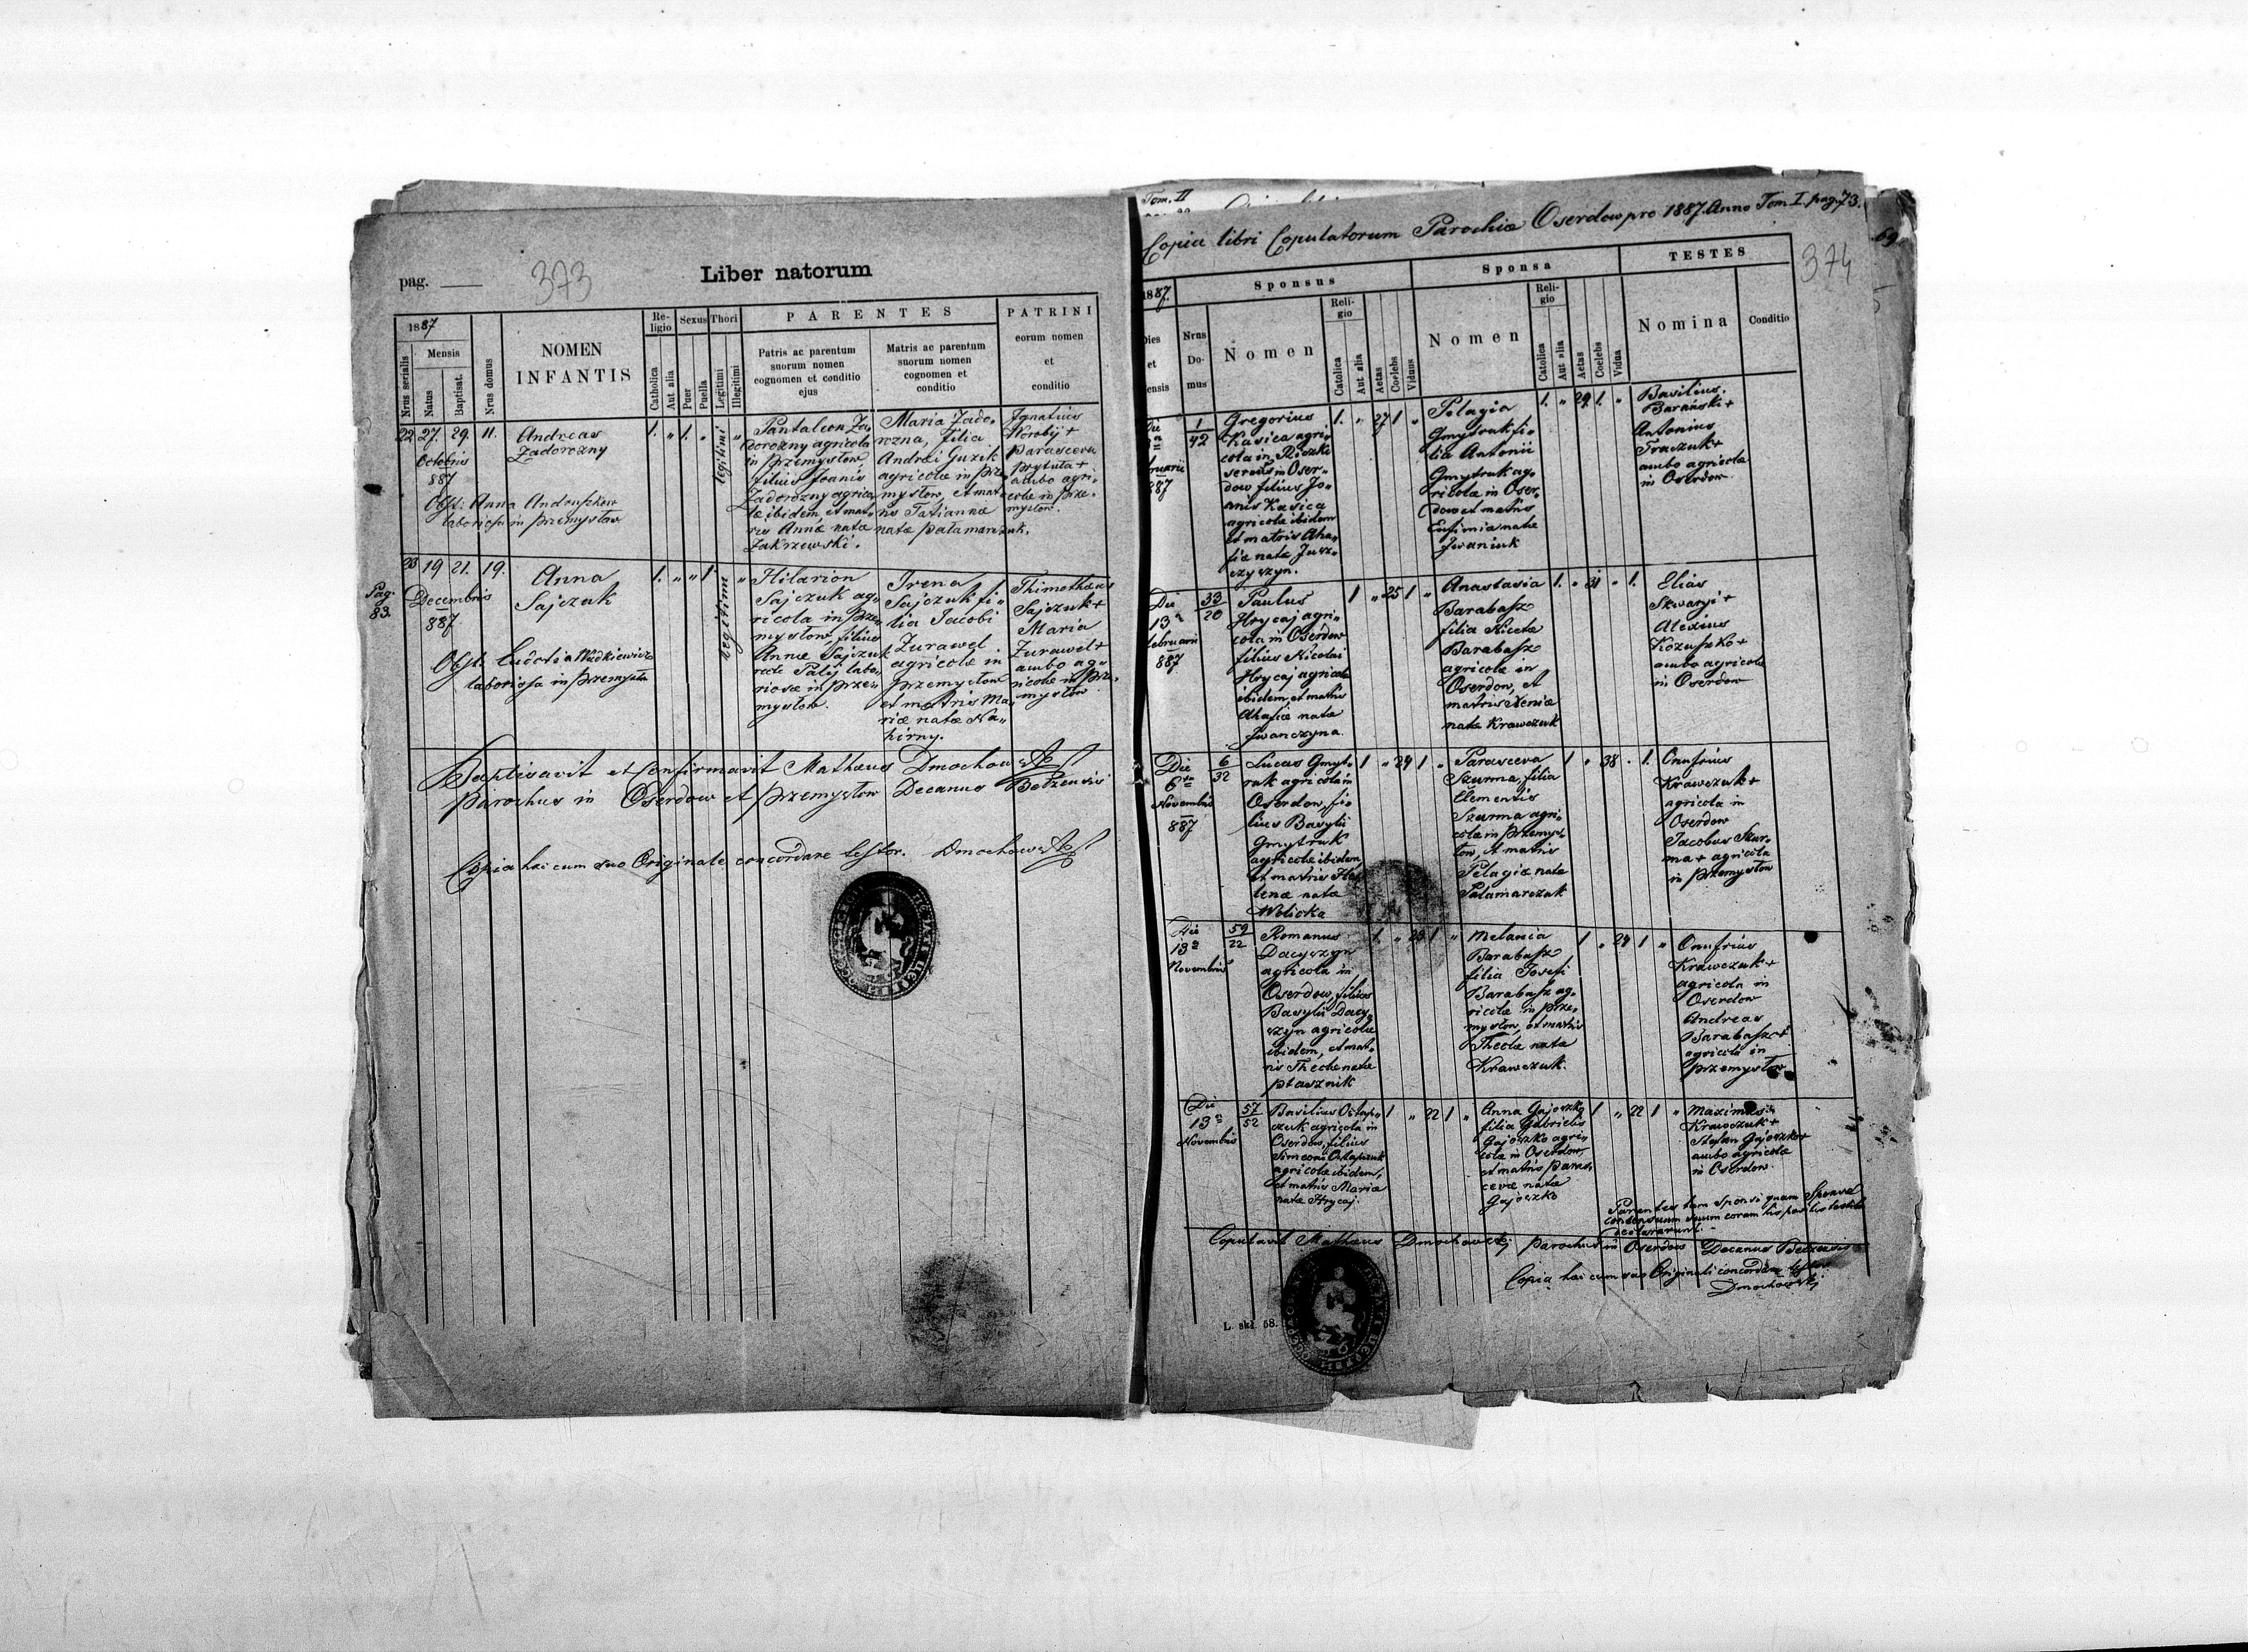 pag.
373
Liber natorum
1887
Nrus serialis
Mensis
Natus
Baptisat.
Nrus domus
NOMEN
INFANTIS
Re-
ligio
Catholica
Aut alia
Sexus
Puer
Puella
Thori
Legitimi
Illegitimi
PARENTES
Patris ac parentum
suorum nomen
cognomen et conditio
ejus
Matris ac parentum
suorum nomen
cognomen et
conditio
PATRINI
eorum nomen
et
conditio
22 27. 29. 11.
Octobris
887
Andreas
Zadorozny
1. „ 1. „ legitimi „
Obst: Anna
laboriosa in Przemysłow
Pantaleon Za„
dorozny agricola
in Przemysłow
filius Joanis
Zadorozny agrico„
læ ibidem, et mat„
ris Annæ natæ
Zakrzewski.
Maria Zado„
rozna, filia
Andrei Guzik
agricolæ in Prze
mysłow, et mat„
ris Tatiannæ
natæ Pałamarczuk.
Ignatius
Worobij +
Parasceva
Prytuła +
ambo agri„
colæ in Prze„
mysłow.
Pag.
83.
23 19 21. 19.
Decembris
887
Anna
Sajczuk
1. „ „ 1. legitimi „
Obst.
laboriosa in Przemysłow
Hilarion
Sajczuk ag„
ricola in Prze„
mysłow, filius
Annæ Sajczuk
recte Palij labo„
riosæ in Prze„
mysłow.
Irena
Sajczuk fi„
lia Jacobi
Zurawel
agricolæ in
Przemysłow
et matris Ma„
riæ natæ Na„
hirny.
Thimothæus
Sajczuk +
Maria
Zurawel +
ambo ag„
ricolæ in Prze„
mysłow.
Baptisavit et Confirmavit Mathæus Dmochowski
Parochus in Oserdow et Przemysłow Decanus Bełzensis
Copia hæc cum suo Originale concordare testor. Dmochowski
Tom. II
Copia libri Copulatorum Parochiæ Oserdow pro 1887. Anno Tom I. pag. 73.
69
374
1887.
Dies
et
mensis
Nrus
Do-
mus
Sponsus
Nomen
Reli-
gio
Catholica
Aut alia
Aetas
Coelebs
Viduus
Sponsa
Nomen
Reli-
gio
Catholica
Aut alia
Aetas
Coelebs
Vidua
TESTES
Nomina
Conditio
887
1
42
Gregorius
Kasica agri„
cola in Riszki
serviens in Oser„
dow filius Jo„
anis Kasica
agricolæ ibidem
et matris Aha„
fiæ natæ Jusz„
czyszyn.
1. „ 27 1 „
Pelagia
Gmytruk fi„
lia Antonii
Gmytruk ag„
ricolæ in Oser„
dow et matris
Eufimiæ natæ
Iwaniuk
1. „ 29. 1. „
Basilius
Barański +
Antonius
Traczuk +
ambo agricolæ
in Oserdow.
Die
13a
Februarii
887
33
20
Paulus
Hrycaj agri„
cola in Oserdow
filius Nicolai
Hrycaj agricolæ
ibidem, et matris
Ahafiæ natæ
Iwanczyna.
1 „ 25 1 „
Anastasia
Barabasz
filia Nicetæ
Barabasz
agricolæ in
Oserdow, et
matris Xeniæ
natæ Krawczuk
1. „ 31 „ 1.
Elias
Skwaryi +
Alexius
Kozuszko +
ambo agricolæ
in Oserdow
Die
6ta
Novembris
887
6
32
Lucas Gmyt„
ruk agricola in
Oserdow, fi„
lius Basylii
Gmytruk
agricolæ ibidem,
et matris He„
lenæ natæ
Wolicka
1 „ 24 1 „
Parasceva
Szurma, filia
Clementis
Szurma agri„
colæ in Przemys„
łow, et matris
Pelagiæ natæ
Pałamarczuk
1 „ 38 „ 1.
Onufrius
Krawczuk +
agricola in
Oserdow
Jacobus Szur„
ma + agricola
in Przemysłow
Die
13a
Novembris
59
22
Romanus
Dacyszyn
agricola in
Oserdow, filius
Basylii Dacy„
szyn agricolæ
ibidem, et mat„
ris Theclæ natæ
Ptasznik
1. „ 23 1 „
Melania
Barabasz
filia Josefi
Barabasz ag„
ricolæ in Prze„
mysłow, et matris
Theclæ natæ
Krawczuk.
1 „ 24 1 „
Onufrius
Krawczuk +
agricola in
Oserdow
Andreas
Barabasz +
agricola in
Przemysłow
Die
13a
Novembris
57
52
Basilius Ostap„
czuk agricola in
Oserdow, filius
Simeoni Ostapczuk
agricolæ ibidem,
et matris Mariæ
natæ Hrycaj.
1 „ 22 1 „
Anna Gajoszko
filia Gabrielis
Gajoszko agri„
colæ in Oserdow,
et matris Paras„
cevæ natæ
Gajoszko
1 „ 22 1 „
Maximus
Krawczuk +
Stefan Gajoszko +
ambo agricolæ
in Oserdow.
Parentes tam Sponsi quam Sponsæ
consensum suum coram his testibus
declararunt.
Copulavit Mathæus Dmochowski Parochus in Oserdow Decanus Bełzensis
Copia hæc cum suo Originali concordare testor
Dmochowski
L. skł. 58.